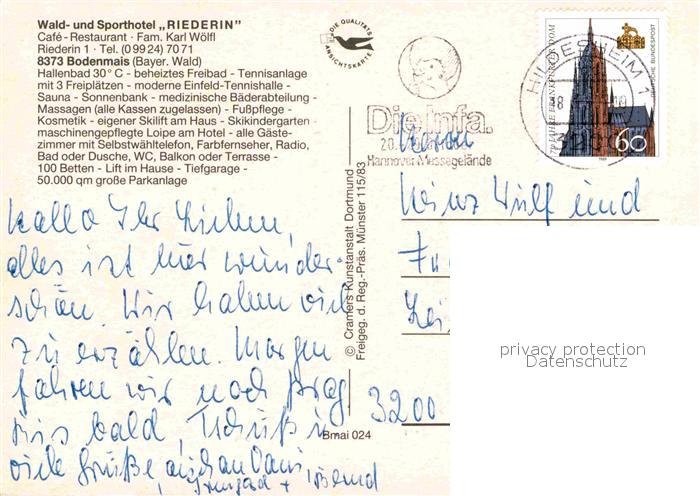 Wald- und Sporthotel „RIEDERIN"
Café - Restaurant · Fam. Karl Wölfl
Riederin 1 · Tel. (0 99 24) 70 71
8373 Bodenmais (Bayer. Wald)
Hallenbad 30° C - beheiztes Freibad - Tennisanlage
mit 3 Freiplätzen - moderne Einfeld-Tennishalle -
Sauna - Sonnenbank - medizinische Bäderabteilung -
Massagen (alle Kassen zugelassen) - Fußpflege -
Kosmetik - eigener Skilift am Haus - Skikindergarten -
maschinengepflegte Loipe am Hotel - alle Gäste-
zimmer mit Selbstwähltelefon, Farbfernseher, Radio,
Bad oder Dusche, WC, Balkon oder Terrasse -
100 Betten - Lift im Hause - Tiefgarage -
50.000 qm große Parkanlage
DIE QUALITÄTS
ANSICHTSKARTE
Die Infa.
20.
Hannover-Messegelände
HILDESHEIM 1
3200
JAHRE FRANKFURTER DOM
DEUTSCHE BUNDESPOST
60
© Cramers Kunstanstalt Dortmund
Freigeg. d. Reg.-Präs. Münster 115/83
Hallo Ihr Lieben,
alles ist hier wunder-
schön. Wir haben viel
zu erzählen. Morgen
fahren wir nach Prag
Bis bald, Tschüß u.
viele Grüße, auch an
Irmgard +
Heinz Wulf und
3200
Bmai 024
privacy protection
Datenschutz